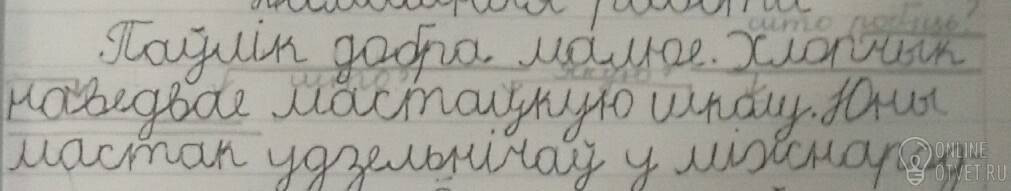 што робіць?
Паўлік добра малюе. Хлопчык
наведвае мастацкую школу. Юны
мастак удзельнічаў у міжнарод
ONLINE
OTVET.RU